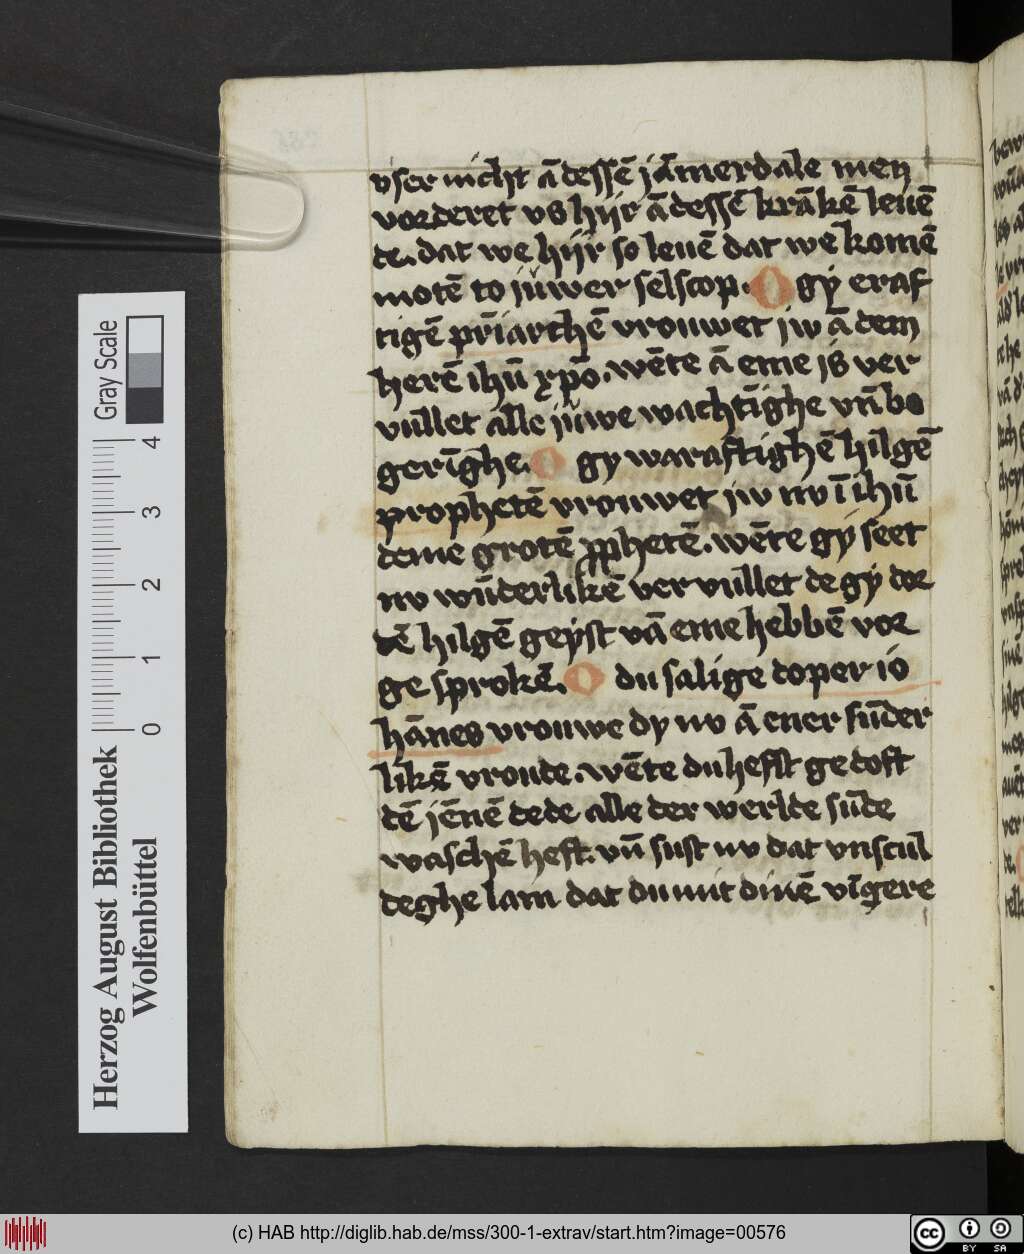 vser nicht ā dessē jāmerdale men
vorderet vs hyr ā dessē krākē leuē
de. dat we hyr so leuē dat we komē
motē to juwer selscop. O gy eraf
tigē pr̄iarchē vrouwet jw ā dem
herē ihū xp̄o. wēte ā eme is ver
vullet alle juwe wachtīghe vn̄ be
gerīghe. O gy waraftighē hilgē
prophetē vrouwet jw nv ī ihū
deme grotē ꝓphetē. wēte gy seet
nv wūderlikē vervullet de gy dor
dē hilgē geyst vā eme hebbē vor
ge sprokē. O du salige doper io
hānes vrouwe dy nv ā ener sūder
likē vroude. wēte du hefft gedoft
dē jēnē dede alle der werlde sūde
waschē heft. vn̄ sust nv dat vnscul
deghe lam dat du mit dinē vīgere
Herzog August Bibliothek
Wolfenbüttel
Gray Scale
0 1 2 3 4
(c) HAB http://diglib.hab.de/mss/300-1-extrav/start.htm?image=00576
cc BY SA